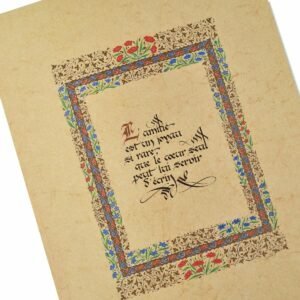 L'amitié
est un joyau
si rare,
que le cœur seul
peut lui servir
d'écrin